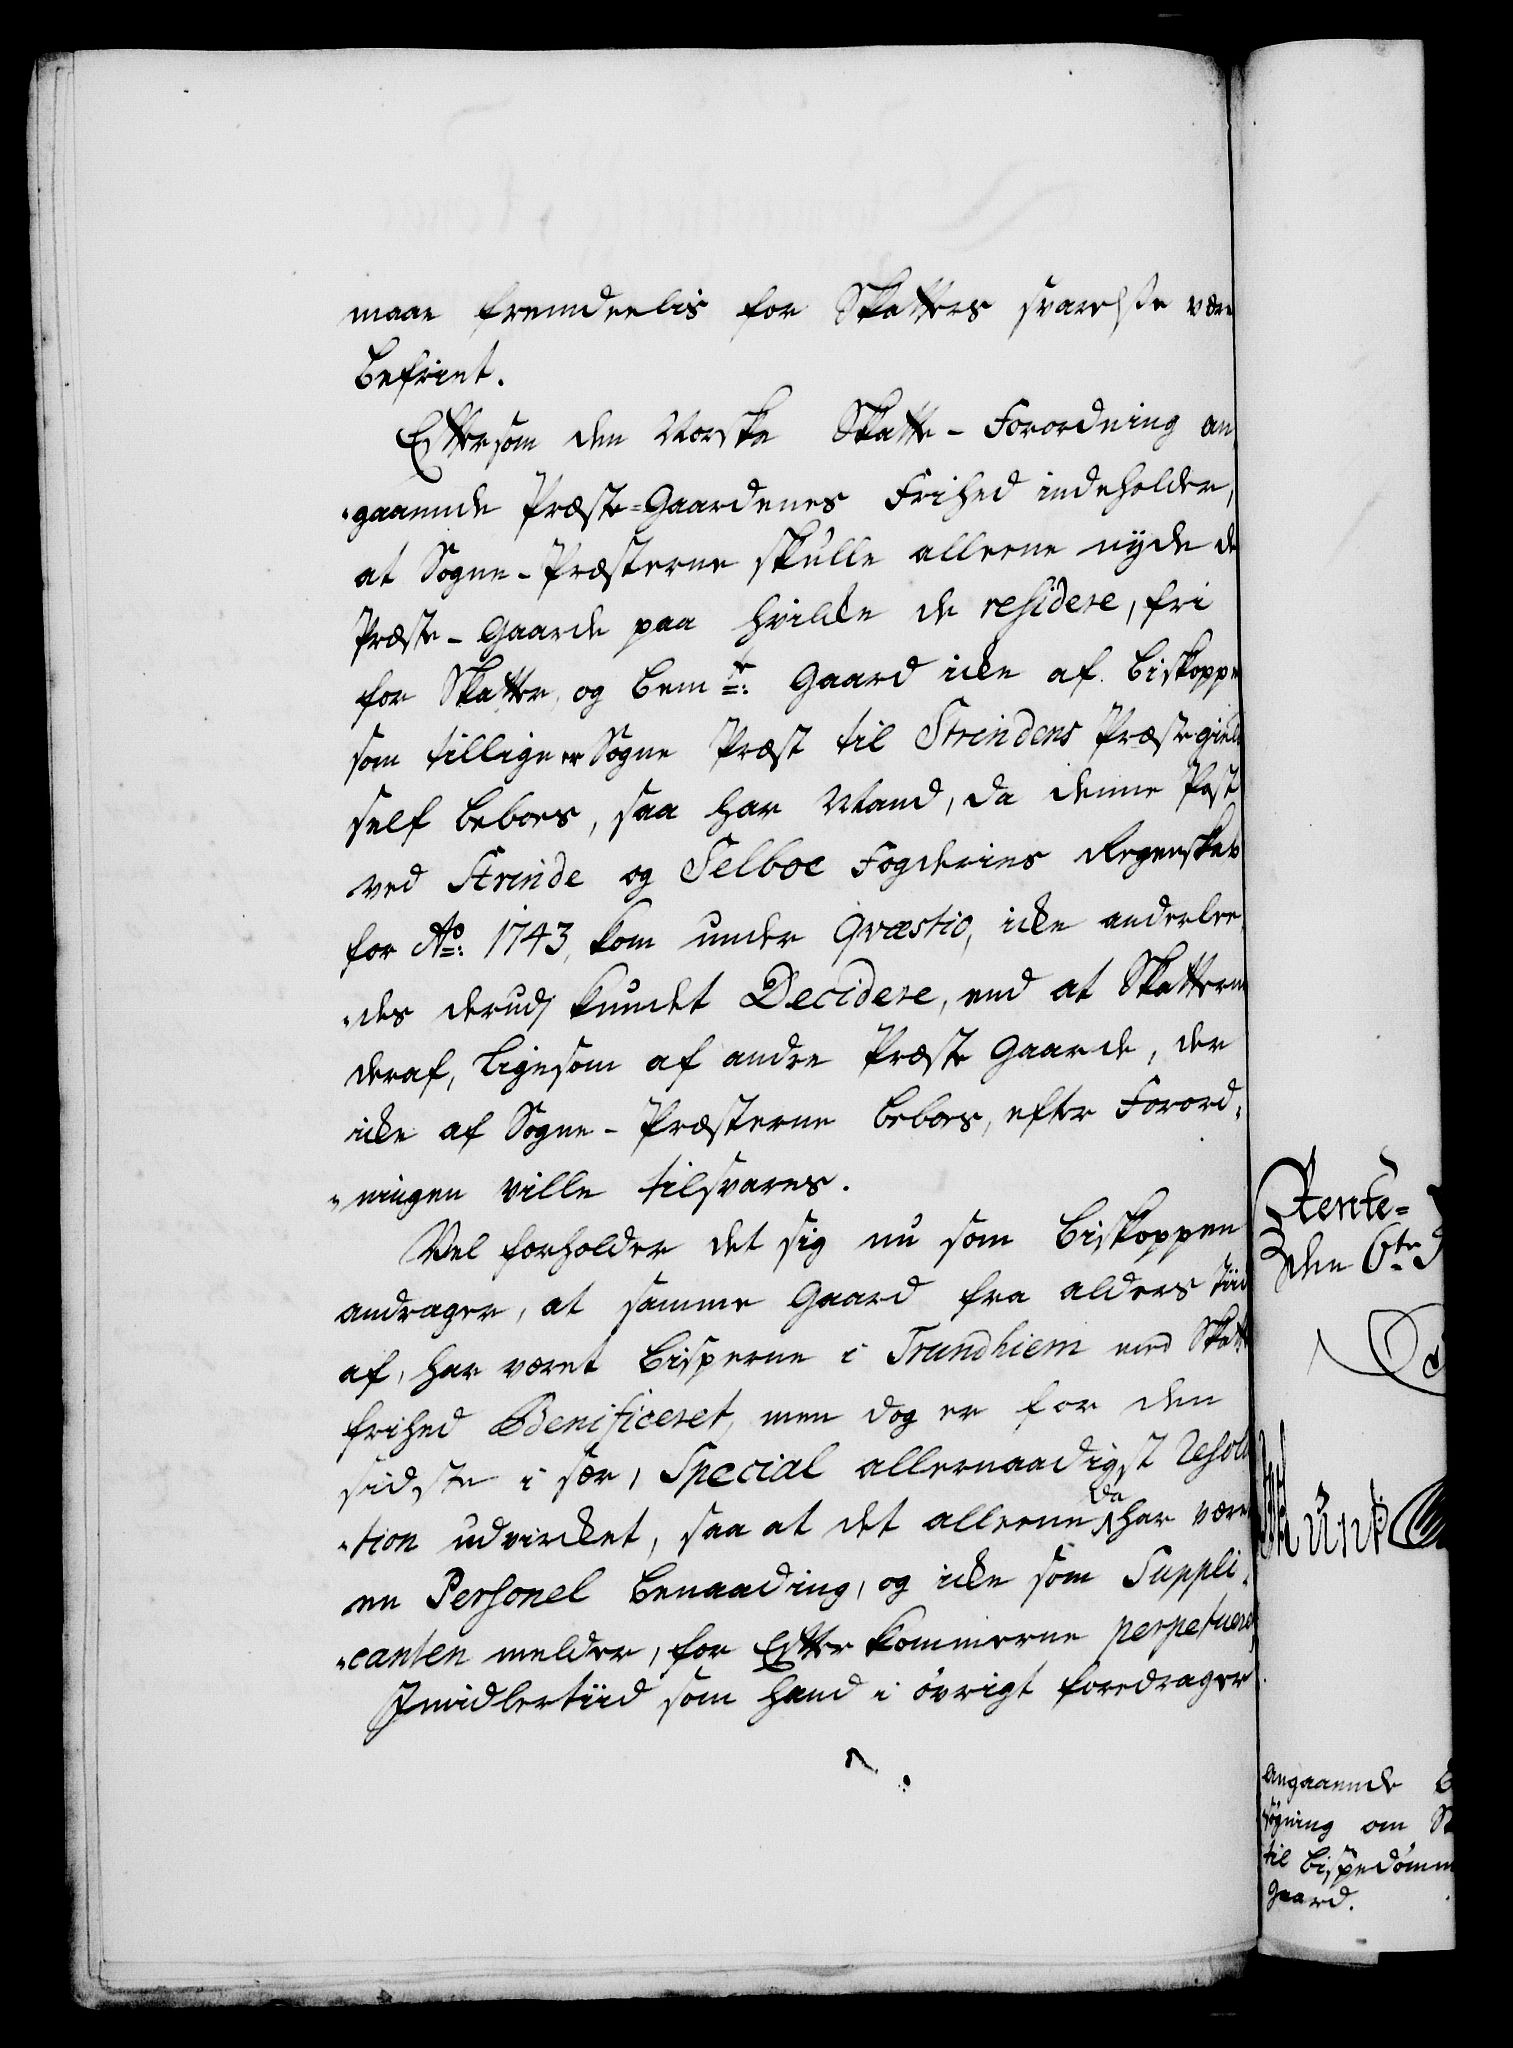 maae fremdeelis for Skatters svarelse være
befriet.
Eftersom den Norske Skatte-Forordning an¬
„gaaende Præste-Gaardenes Frihed indeholder,
at Sogne-Præsterne skulle alleene nyde de
Præste-Gaarde paa hvilke de residere, fri
for Skatter, og bemte: Gaard icke af Biskoppen
som tillige er Sogne Præst til Strindens Præstegield
self beboes, saa har Mand, da denne Post
ved Strinde og Selboe Fogderies Regenskab
for Ao: 1743, kom under Qvæstio, icke anderlee¬
„des derud/ kundet Decidere, end at Skatterne
deraf, ligesom af andre Præste Gaarde, der
icke af Sogne-Præsterne beboes, efter Forord¬
„ningen ville tilsvares.
Vel forholder det sig nu som Biskoppen
andrager, at samme Gaard fra alders Tiid
af, har været Bisperne i Trundhiem med Skatte
frihed Benificeret, men dog er for den
sidste i sær, Special allernaadigst Resolu
„tion udvircket, saa at det alleene da har været
en Personel benaading, og icke som Suppli¬
„canten melder, for Efterkommerne perpetueret,
Imidlertiid som hand i øvrigt foredrager
Rente=
den 6te
Angaaende B
søgning om Sk
til Bispedømm
Gaard.